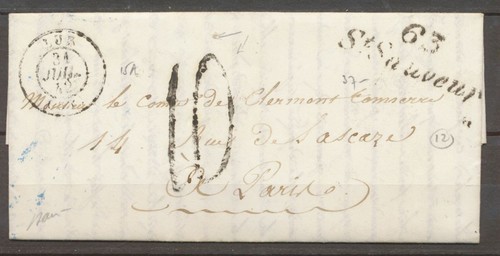 LUZ
31
JUIL.
63
St Sauveur
15h
37-
10
Monsieur le comte de Clermont Tonnerre
14 Rue de Lascaze
12
A Paris